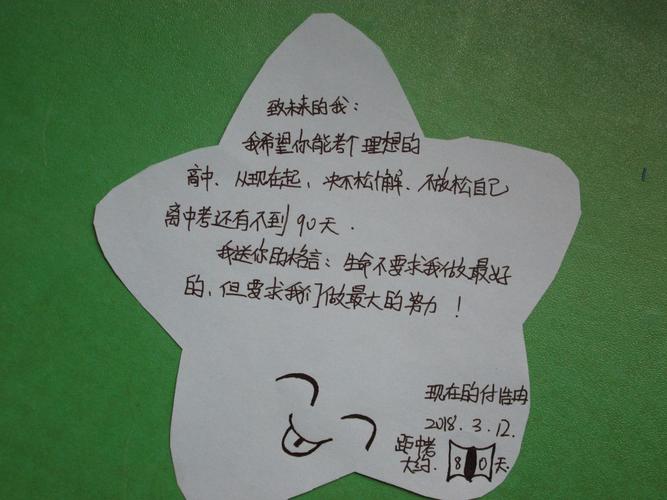 致未来的我：
我希望你能考个理想的
高中、从现在起，决不松懈、不放松自己
离中考还有不到90天．
我送你的格言：生命不要求我做最好
的，但要求我们做最大的努力！
现在的付浩冉
2018.3.12.
距中考
大约 80天